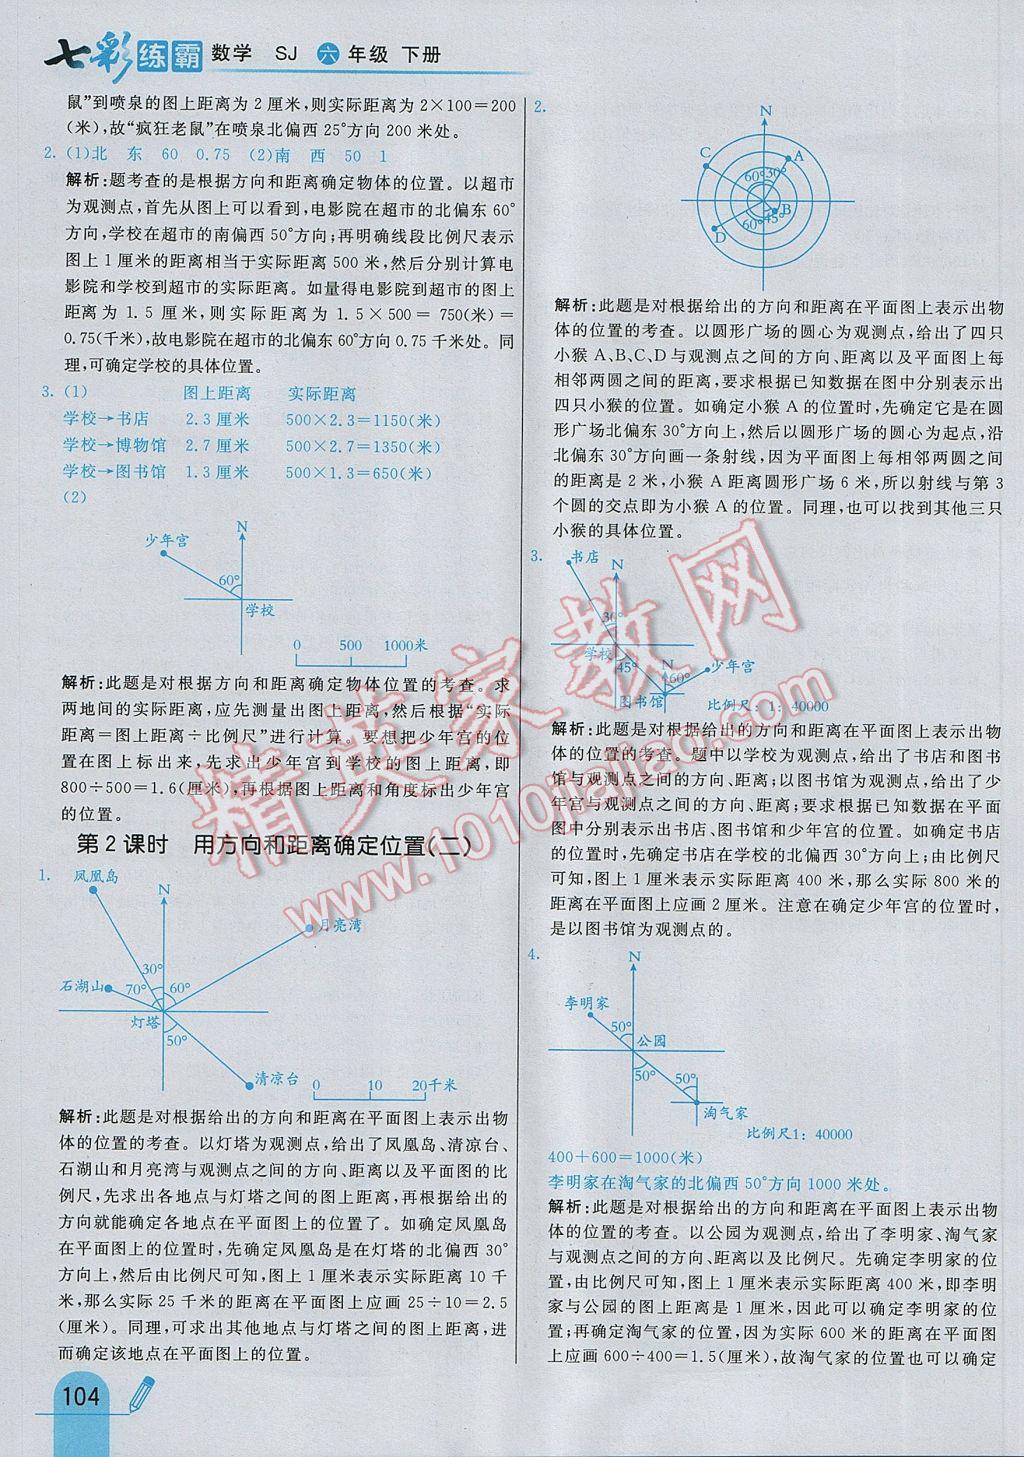 七彩练霸 数学 SJ 六年级 下册
鼠”到喷泉的图上距离为 2 厘米,则实际距离为 2×100=200
(米),故“疯狂老鼠”在喷泉北偏西 25°方向 200 米处。
2. (1)北 东 60 0.75 (2)南 西 50 1
解析:题考查的是根据方向和距离确定物体的位置。以超市
为观测点,首先从图上可以看到,电影院在超市的北偏东 60°
方向,学校在超市的南偏西 50°方向;再明确线段比例尺表示
图上 1 厘米的距离相当于实际距离 500 米,然后分别计算电
影院和学校到超市的实际距离。如量得电影院到超市的图上
距离为 1.5 厘米,则实际距离为 1.5×500=750(米)=
0.75(千米),故电影院在超市的北偏东 60°方向 0.75 千米处。同
理,可确定学校的具体位置。
3. (1) 图上距离 实际距离
学校→书店 2.3 厘米 500×2.3=1150(米)
学校→博物馆 2.7 厘米 500×2.7=1350(米)
学校→图书馆 1.3 厘米 500×1.3=650(米)
(2)
N
少年宫
60°
学校
0 500 1000米
解析:此题是对根据方向和距离确定物体位置的考查。求
两地间的实际距离,应先测量出图上距离,然后根据“实际
距离=图上距离÷比例尺”进行计算。要想把少年宫的位
置在图上标出来,先求出少年宫到学校的图上距离,即
800÷500=1.6(厘米),再根据图上距离和角度标出少年宫
的位置。
第 2 课时 用方向和距离确定位置(二)
1. 凤凰岛
N
月亮湾
30°
石湖山 70° 60°
灯塔
50°
清凉台
0 10 20千米
解析:此题是对根据给出的方向和距离在平面图上表示出物
体的位置的考查。以灯塔为观测点,给出了凤凰岛、清凉台、
石湖山和月亮湾与观测点之间的方向、距离以及平面图的比
例尺,先求出各地点与灯塔之间的图上距离,再根据给出的
方向就能确定各地点在平面图上的位置了。如确定凤凰岛
在平面图上的位置时,先确定凤凰岛是在灯塔的北偏西 30°
方向上,然后由比例尺可知,图上 1 厘米表示实际距离 10 千
米,那么实际 25 千米的距离在平面图上应画 25÷10=2.5
(厘米)。同理,可求出其他地点与灯塔的图上距离,进
而确定该地点在平面图上的位置。
104
2.
N
C A
60° 30°
B
60° 45°
D
解析:此题是对根据给出的方向和距离在平面图上表示出物
体的位置的考查。以圆形广场的圆心为观测点,给出了四只
小猴 A、B、C、D 与观测点之间的方向、距离以及平面图上每
相邻两圆之间的距离,要求根据已知数据在图中分别表示出
四只小猴的位置。如确定小猴 A 的位置时,先确定它是在圆
形广场北偏东 30°方向上,然后以圆形广场的圆心为起点,沿
北偏东 30°方向画一条射线,因为平面图上每相邻两圆之间
的距离是 2 米,小猴 A 距离圆形广场 6 米,所以射线与第 3
个圆的交点即为小猴 A 的位置。同理,也可以找到其他三只
小猴的具体位置。
3. 书店
N
30°
学校
45° N 少年宫
60°
图书馆
比例尺: 1: 40000
解析:此题是对根据给出的方向和距离在平面图上表示出物
体的位置的考查。题中以学校为观测点,给出了书店和图书
馆与观测点之间的方向、距离;以图书馆为观测点,给出了少
年宫与观测点之间的方向、距离;要求根据已知数据在平面
图中分别表示出书店、图书馆和少年宫的位置。如确定书店
的位置时,先确定书店在学校的北偏西 30°方向上;由比例尺
可知,图上 1 厘米表示实际距离 400 米,那么实际 800 米的
距离在平面图上应画 2 厘米。注意在确定少年宫的位置时,
是以图书馆为观测点的。
4.
N
李明家
50°
公园
50° 50°
淘气家
比例尺1: 40000
400+600=1000(米)
李明家在淘气家的北偏西 50°方向 1000 米处。
解析:此题是对根据给出的方向和距离在平面图上表示出物
体的位置的考查。以公园为观测点,给出了李明家、淘气家
与观测点之间的方向、距离以及比例尺。先确定李明家的位
置,由比例尺可知,图上 1 厘米表示实际距离 400 米,即李明
家与公园的图上距离是 1 厘米,因此可以确定李明家的位
置;再确定淘气家的位置,因为实际 600 米的距离在平面图
上应画 600÷400=1.5(厘米),故淘气家的位置也可以确定
精英家教网
www.1010jiajiao.com